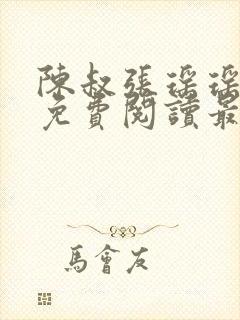 陳叔張瑤瑤
免費閱讀最
馬會友